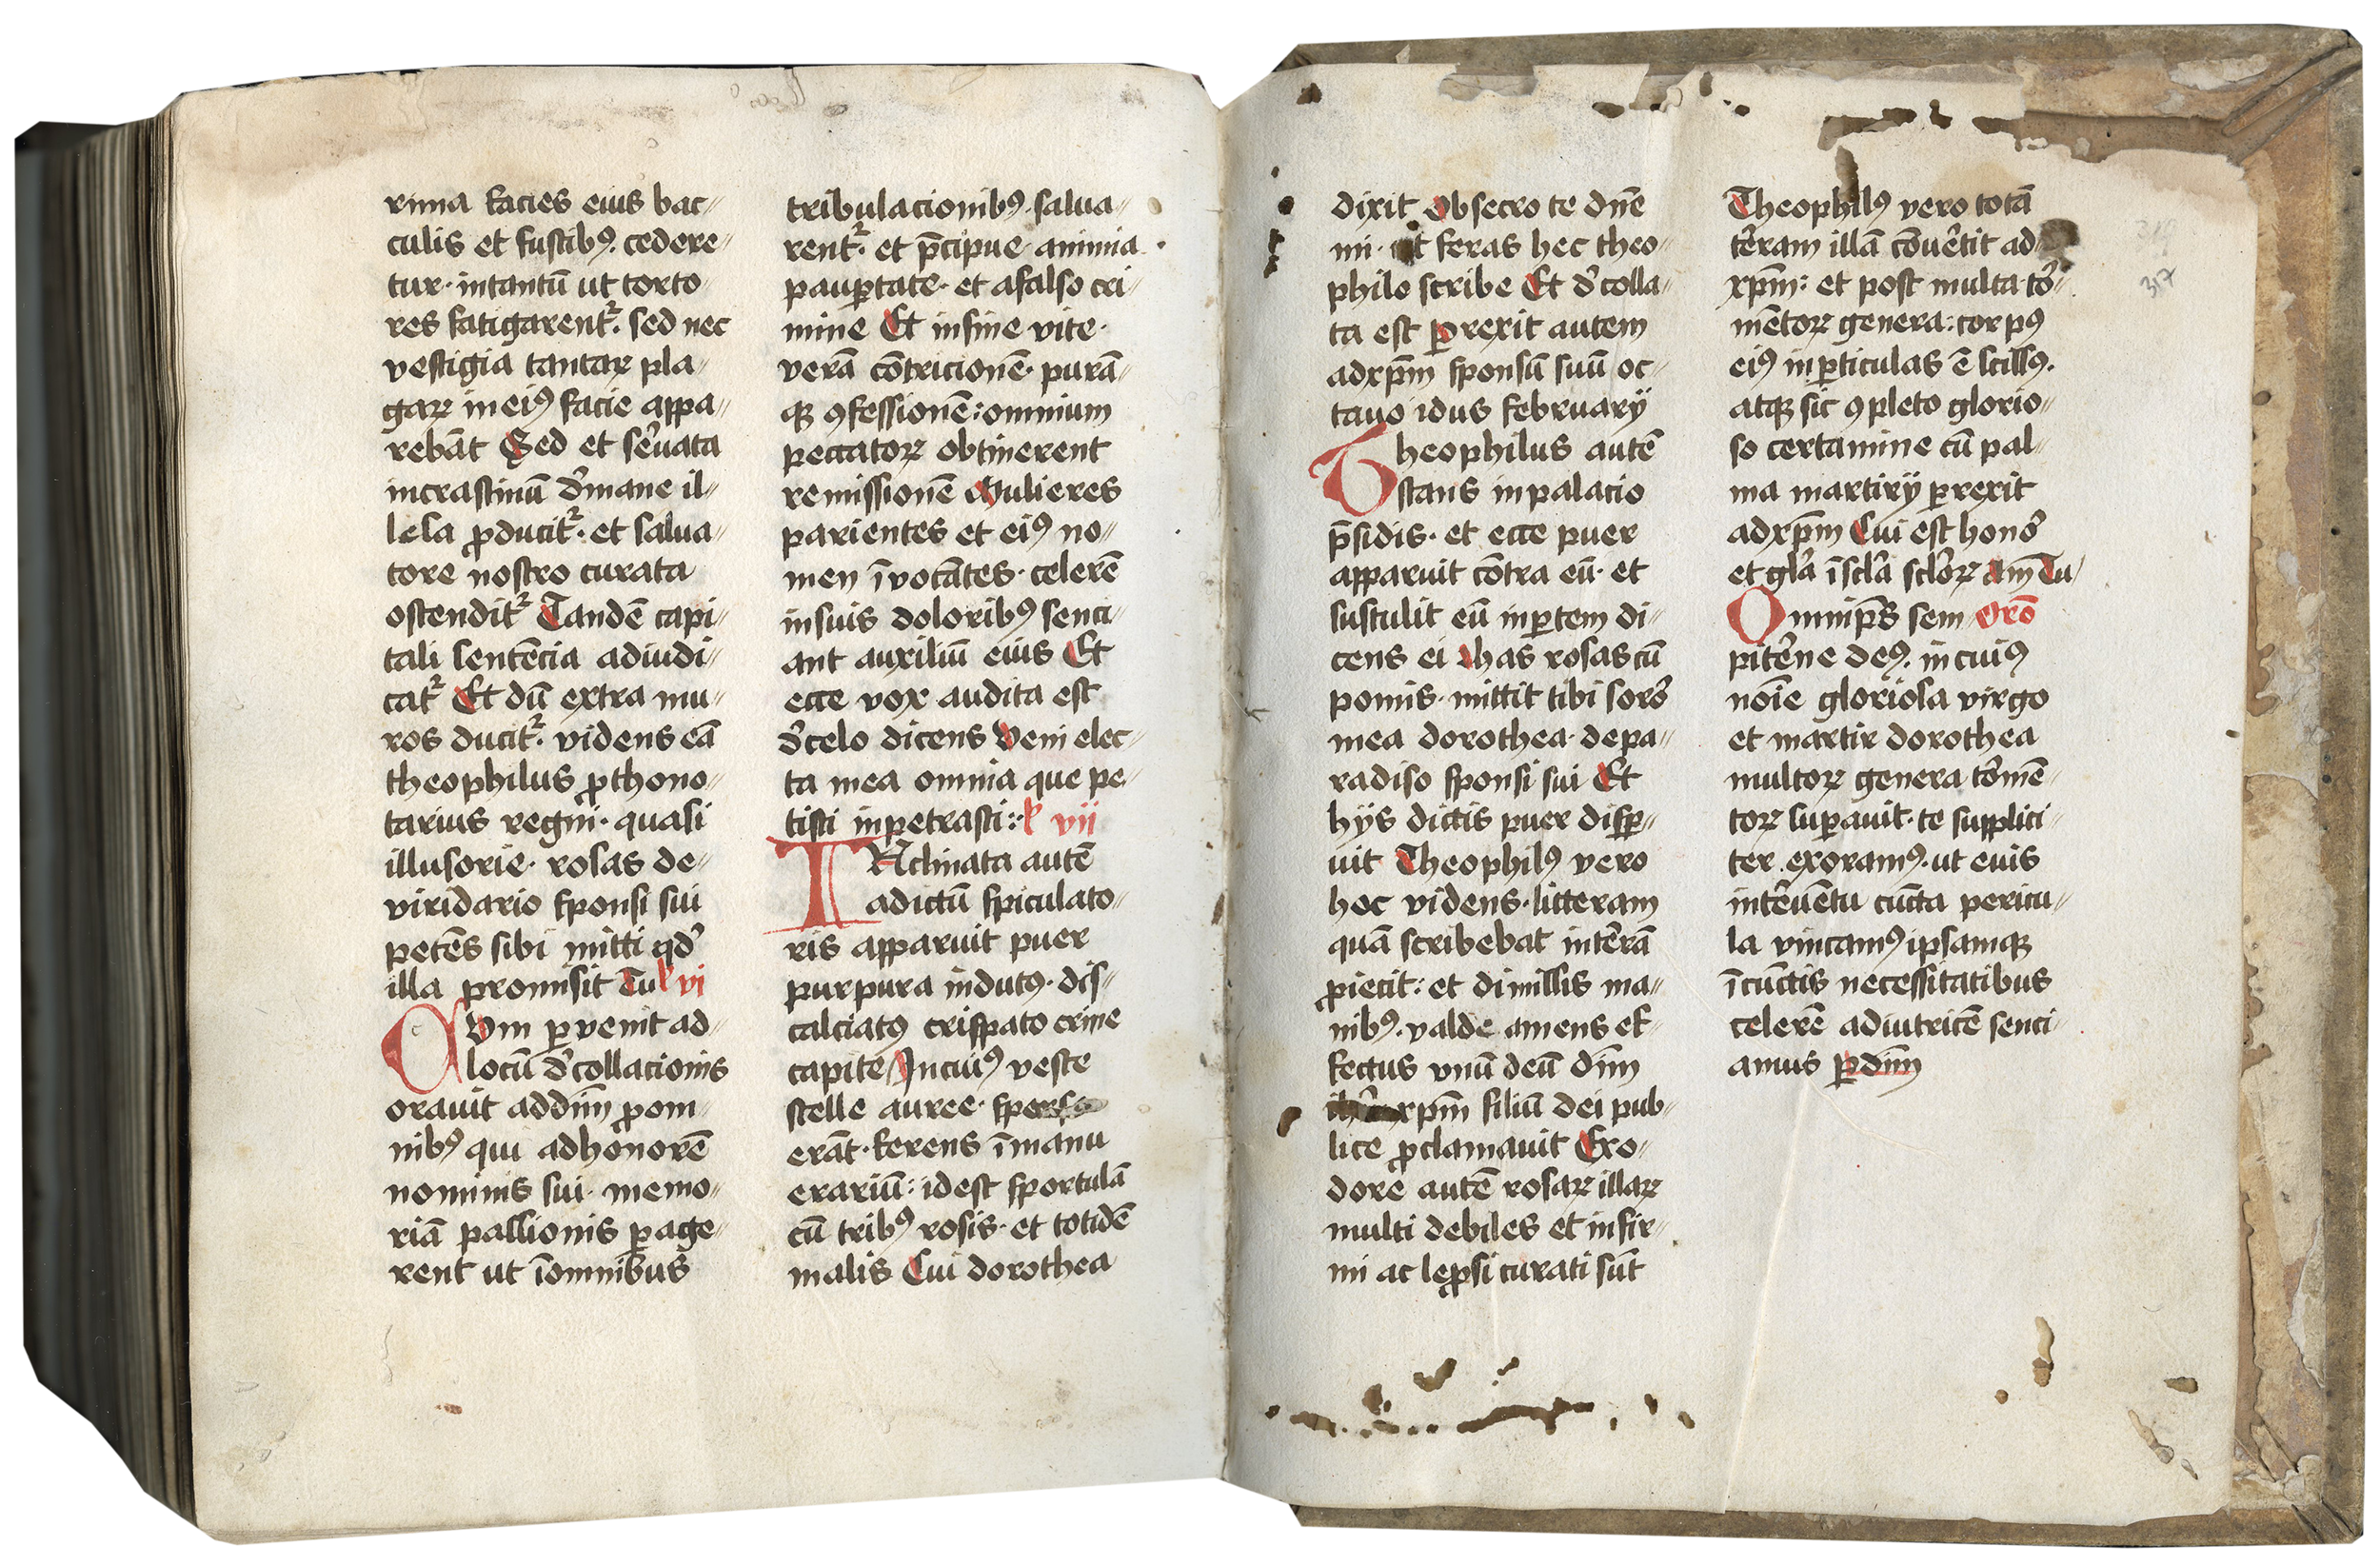 rima facies eius bac⸗
culis et fustibꝰ· cedere⸗
tur· intantū ut torto⸗
res fatigarentᷣ· sed nec
vestigia tantaꝝ pla⸗
gaꝝ in eiꝰ facie appa⸗
rebāt Sed et ser̄uata
incrastinū d̄mane il⸗
lesa ꝓducitᷣ· et salua⸗
tore nostro curata
ostenditᷣ Tandē capi⸗
tali sentēcia adiudi⸗
catᷣ Et dū extra mu⸗
ros ducitᷣ· videns eā
theophilus ꝓthono⸗
tarius regni· quasi
illusorie· rosas de⸗
viridario sponsi sui
petēs sibi mitti qd̄
illa promisit Tu ꝶ vi
CVm ꝑvenit ad⸗
locū d̄collacionis
orauit addn̄m ꝓom⸗
nibꝰ qui adhonorē
nominis sui· memo⸗
riā passionis ꝑage⸗
rent ut īomnibus
tribulacionibꝰ· salua⸗
rentᷣ· et p̄cipue· animia
pauꝑtate· et afalso cri⸗
mine Et infine vite·
verā cōtricionē· purā⸗
qꝫ ꝯfessionē: omnium
peccatoꝝ obtinerent
remissionē Mulieres
parientes et eiꝰ no⸗
men īvocātes· celerē
insuis doloribꝰ senci⸗
ant auxiliū eius Et
ecce vox audita est
d̄celo dicens Veni elec⸗
ta mea omnia que pe⸗
tisti inpetrasti: ꝶ vii
INclinata autē
adictū spiculato⸗
ris apparuit puer
purpura indutꝰ· dis⸗
calciatꝰ crispato crine
capite Incuiꝰ veste
stelle auree· sperse
erāt· ferens īmanu
erariū: idest sportulā
cū tribꝰ rosis· et totidē
malis Cui dorothea
dixit Obsecro te dn̄e
mi· ut feras hec theo⸗
philo scribe Et d̄colla⸗
ta est ꝑrexit autem
adxp̄m sponsū suū oc⸗
tauo idus februarÿ
Theophilus autē
stans inpalacio
p̄sidis· et ecce puer
apparuit cōtra eū· et
sustulit eū inꝑtem di⸗
cens ei has rosas cū
pomis· mittit tibi soror̄
mea dorothea· depa⸗
radiso sponsi sui Et
hÿs dictis puer disꝑ⸗
uit Theophilꝰ vero
hoc videns· litteram
quā scribebat inter̄ā
ꝓiecit: et dimissis ma⸗
nibꝰ· valde amens ef⸗
fectus unū deū dn̄m
ih̄m xp̄m filiū dei pub⸗
lice ꝓclamauit Exo⸗
dore autē rosaꝝ illaꝝ
multi debiles et infir⸗
mi ac leꝓsi curati sūt
Theophilꝰ vero totā
ter̄ram illā cōuer̄tit ad
xp̄m: et post multa tor̄⸗
mētoꝝ genera: corpꝰ
eiꝰ inꝑticulas ē scissꝰ·
atqꝫ sic ꝯpleto glorio⸗
so certamine cū pal⸗
ma martirÿ ꝑrexit
adxp̄m Cui est honor̄
et glā īsclā scloꝝ am Tu
Omnip̄s sem oro
pitēne deꝰ· in cuiꝰ
noīe gloriosa virgo
et martir dorothea
multoꝝ genera tor̄mē⸗
toꝝ suꝑauit· te supplici⸗
ter exoramꝰ· ut euis
inter̄uētu cūcta pericu⸗
la vincamꝰ ipsamqꝫ
īcūctis necessitatibus
celerē adiutricē senci⸗
amus ꝑdn̄m
317